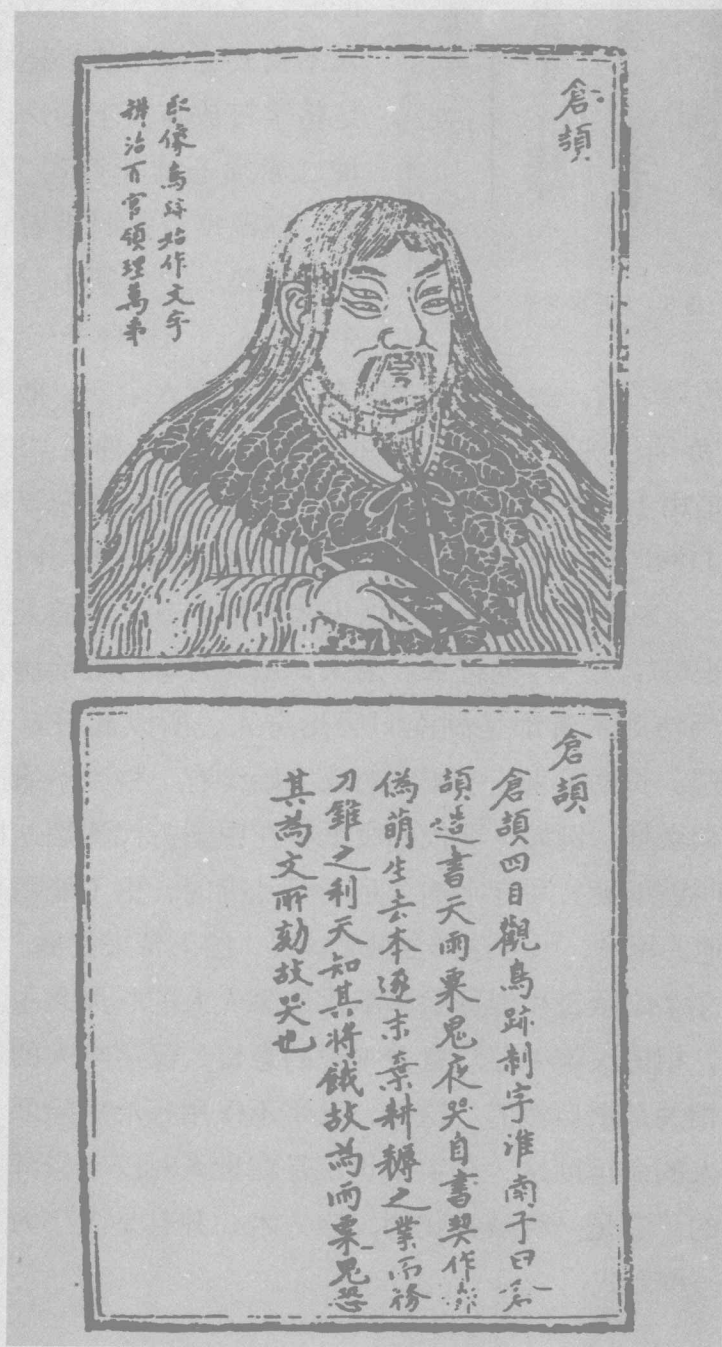 倉頡
取像鳥跡始作文字
辨治百官領理萬事
倉頡
倉頡四目觀鳥跡制字淮南子曰倉
頡造書天雨粟鬼夜哭自書契作
偽萌生去本逐末棄耕耨之業而務
刀錐之利天知其將餓故為雨粟鬼恐
其為文所劾故哭也